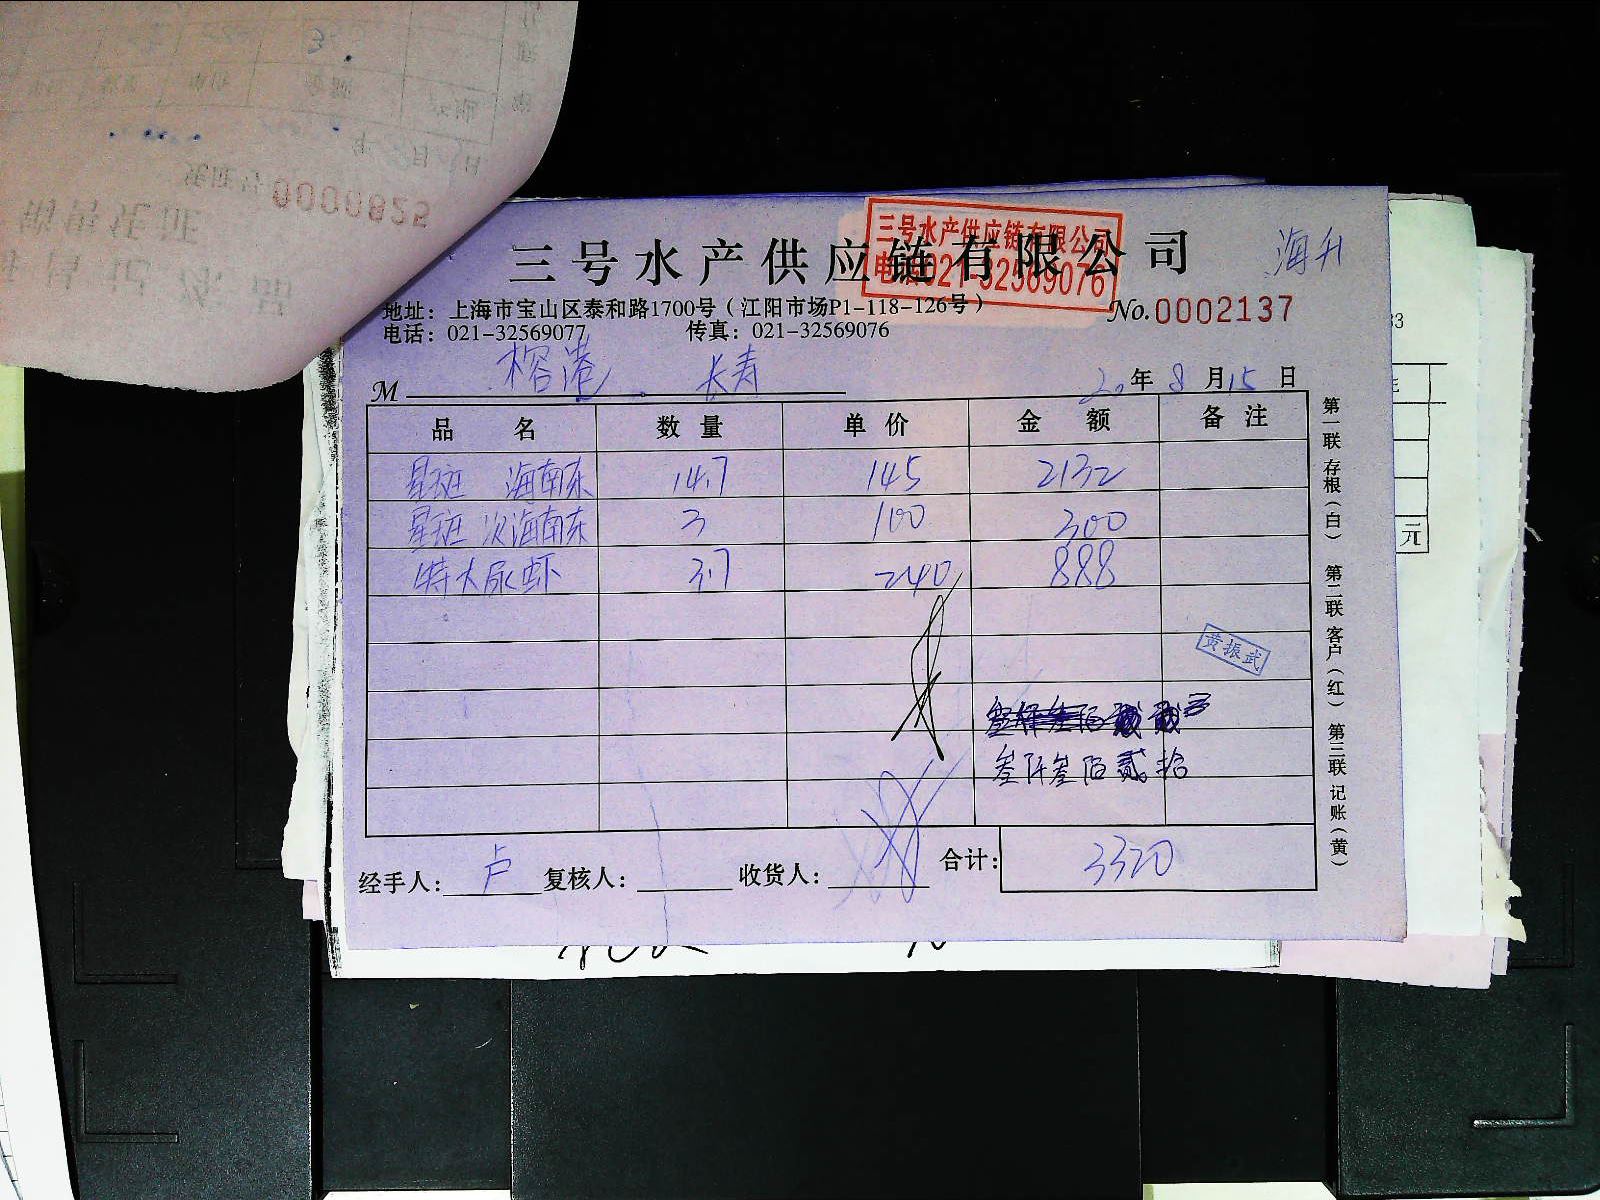 0000825
三号水产供应链有限公司
三号水产供应链有限公司
电话:021-32569076
海升
地址：上海市宝山区泰和路1700号（江阳市场P1-118-126号）
No.0002137
电话：021-32569077 传真：021-32569076
M 榕港 长寿 20年8月15日
品 名 数 量 单 价 金 额 备 注
星斑 海南东 14.7 145 2132
星斑 次海南东 3 100 300
特大尿虾 3.7 240 888
黄振武
叁仟叁佰贰拾
经手人：卢 复核人： 收货人： 合计：3320
第一联 存根（白） 第二联 客户（红） 第三联 记账（黄）
元